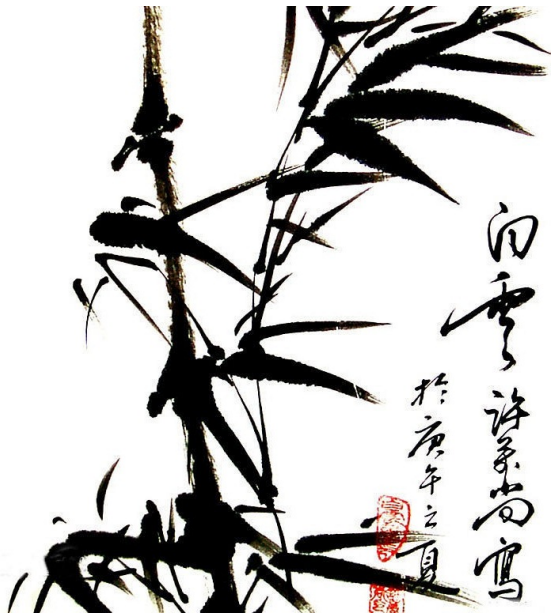 白雲許美尚寫
於庚午之夏